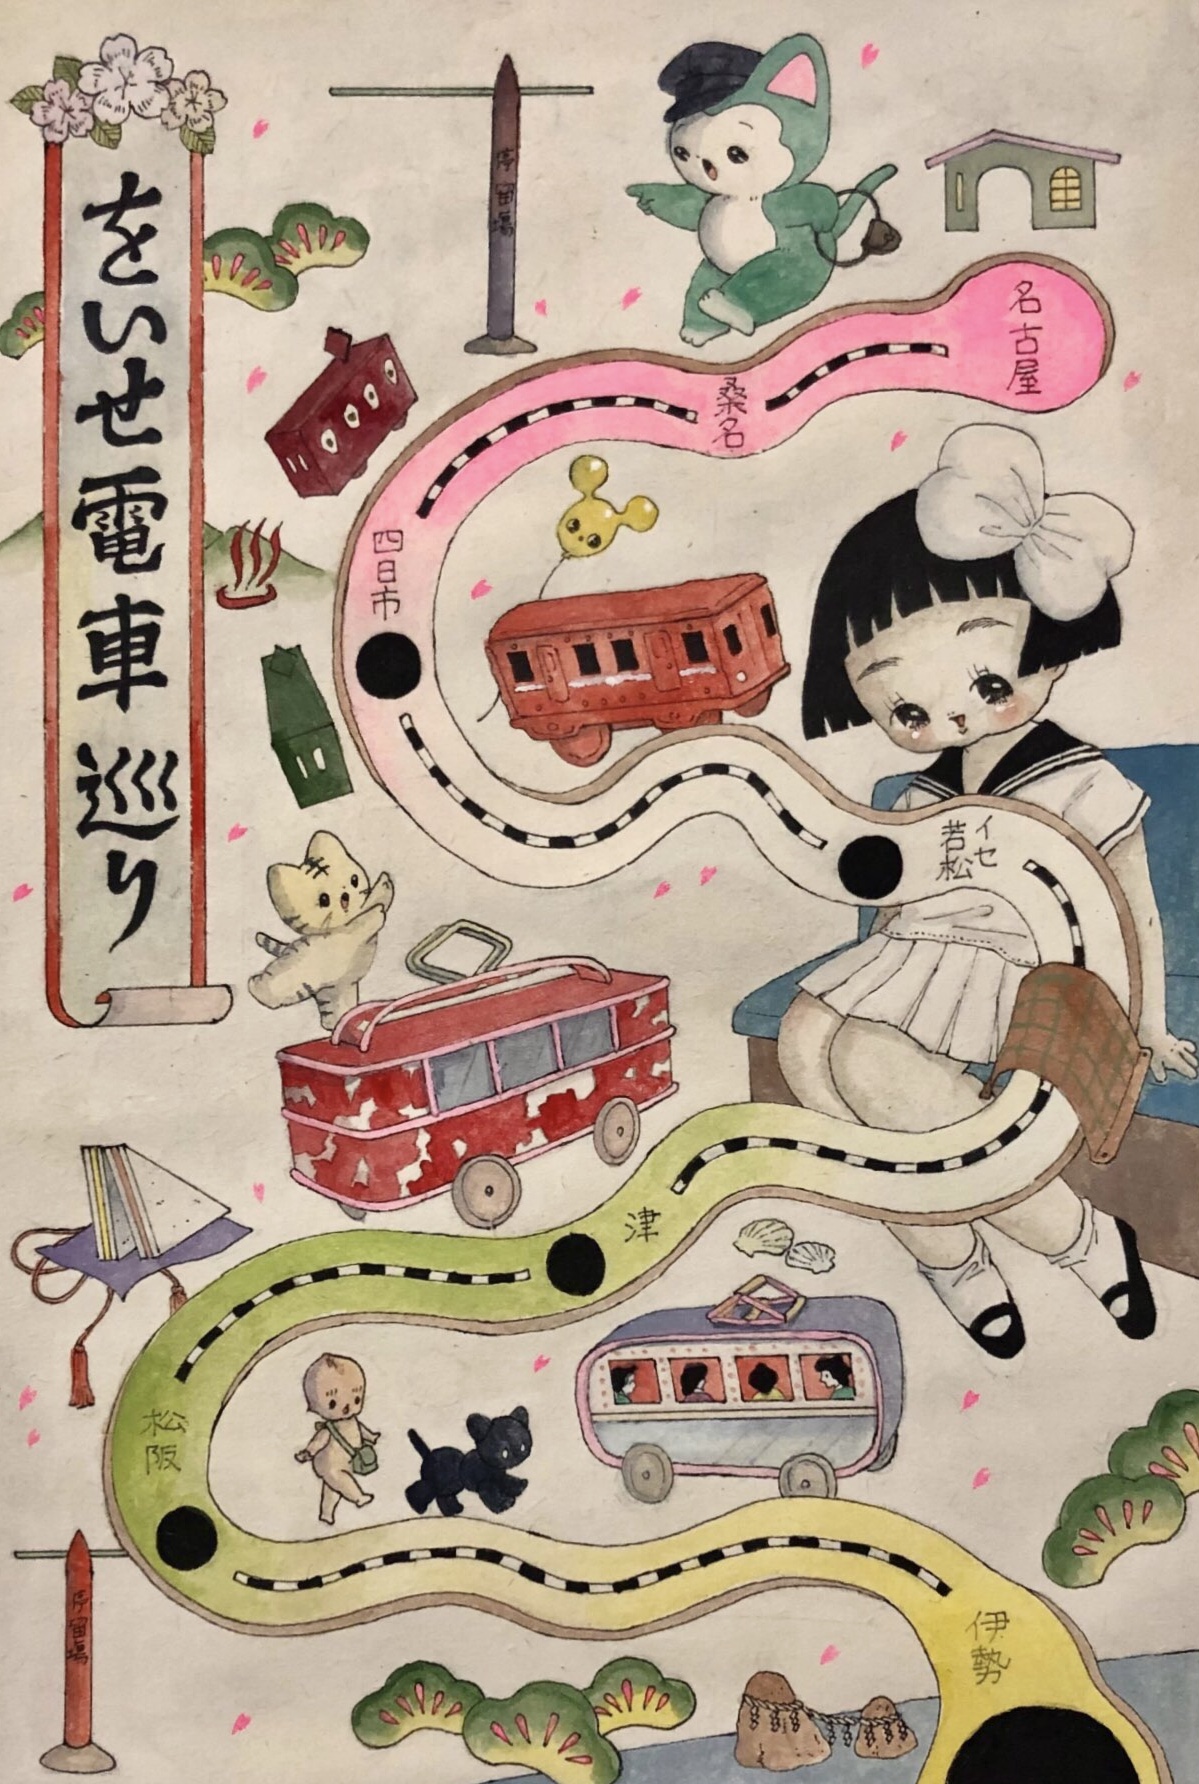 をいせ電車巡り
停留場
名古屋
桑名
四日市
イセ
若松
津
松阪
伊勢
停留場